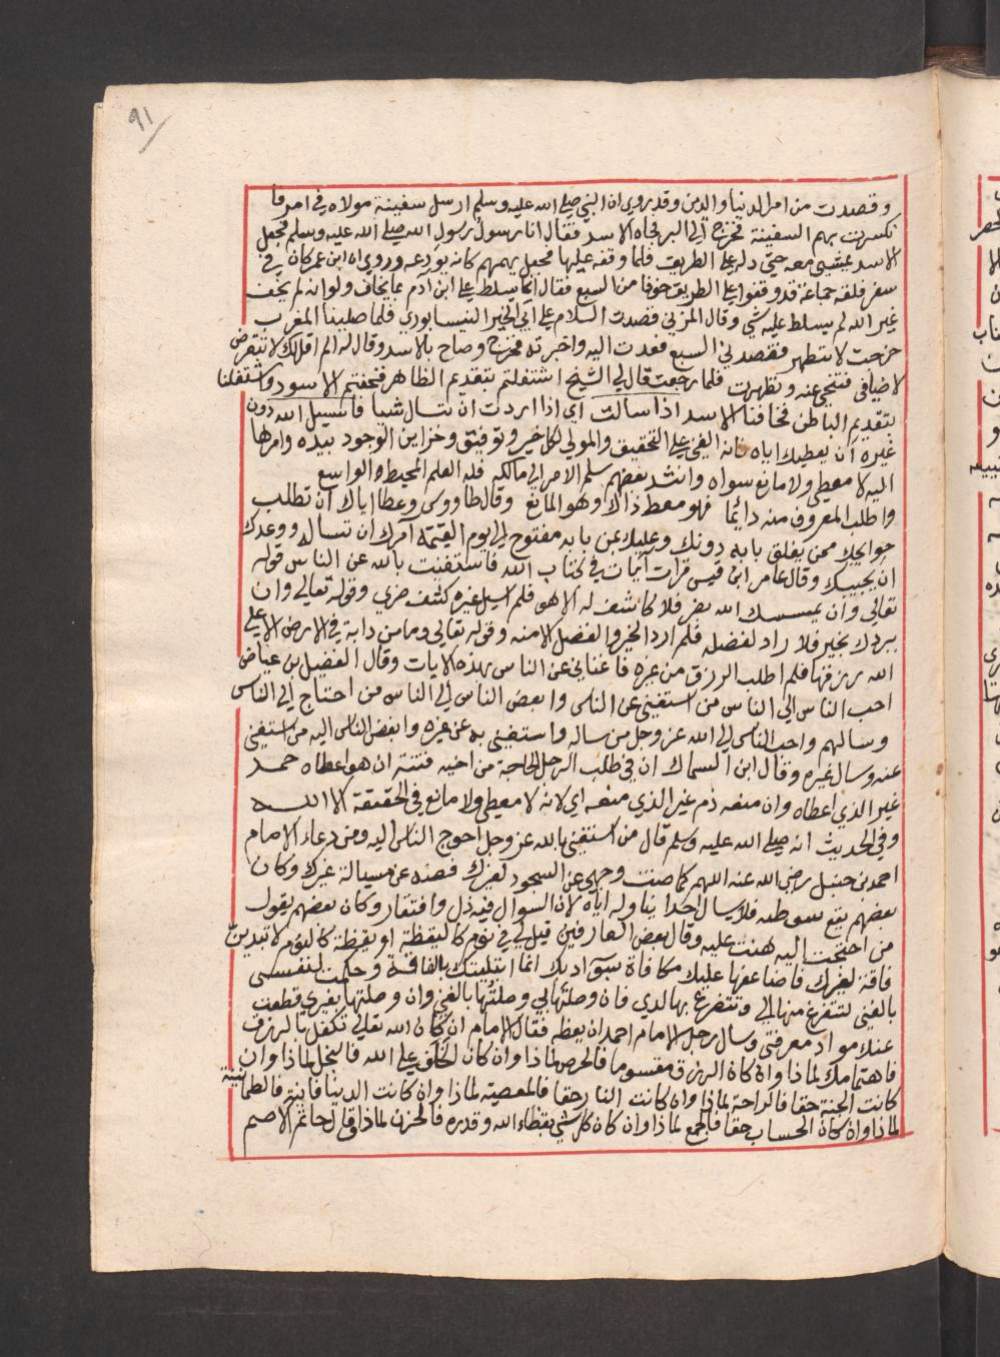 ٩١
وقصدت من امر الدنيا والدين وقد روي ان النبي صلي الله عليه وسلم ارسل سفينة مولاه في امر فا
نكسرت بهم السفينة فخرج الي البر فجاه الاسد فقال انا رسول رسول الله صلي الله عليه وسلم فجعل
الاسد يمشي معه حتي دله علي الطريق فلما وقفه عليها فجعل يهمهم كانه يودعه وروي ان ابن عمر كان في
سفر فلقه جماعة قد وقفوا علي الطريق خوفا من السبع فقال انما يسلط علي ابن آدم بما يخاف ولو انه لم يخف
غير الله لم يسلط عليه شي وقال المزني قصدت السلام علي ابي الخير النيسابوري فلما صلينا المغرب
خرجت لاتطهر فقصدني السبع فعدت اليه واخبرته فخرج وصاح بالاسد وقال له الم اقل لك لا تتعرض
لاضيافي فتنحي عنه وتطهرت فلما رجعت قال لي الشيخ اشتغلتم بتقديم الظاهر فخفتم الاسود واشتغلنا
بتقديم الباطن فخافنا الاسد اذا سالت اي اذا اردت ان تسال شيا فاسئل الله دون
غيره ان يعطيك اياه فانه الغني علي التحقيق والمولي لكل خير وتوفيق وخزاين الوجود بيده وامرها
اليه لا معطي ولا مانع سواه وانشد بعضهم سلم الامر الي مالكه فله العلم المحيط الواسع
واطلب المعروف منه دائما فهو معط ذاك وهو المانع وقال طاووس وعطا اياك ان تطلب
حوايجك ممن يغلق بابه دونك وعليك بمن بابه مفتوح الي يوم القيمة آمرك ان تسال ووعدك
ان يجيبك وقال عامر ابن قيس قرات آيات في كتاب الله فاستغنيت بالله عن الناس قوله
تعالي وان يمسسك الله بضر فلا كاشف له الا هو فلم اسيل غيره كشف ضري وقوله تعالي وان
يردك بخير فلا راد لفضله فلم ارد الخير والفضل الا منه وقوله تعالي وما من دابة في الارض الا علي
الله رزقها فلم اطلب الرزق من غيره فاغناني عن الناس بهذه الايات وقال الفضيل بن عياض
احب الناس الي الناس من استغني عن الناس وابعض الناس الي الناس من احتاج الي الناس
وسالهم واحب الناس الي الله عز وجل من ساله واستغني به عن غيره وابغض الناس اليه من استغني
عنه وسال غيره وقال ابن السماك ان في طلب الرجل الحاجة من اخيه فتنة ان هو اعطاه حمد
غير الذي اعطاه وان منعه ذم غير الذي منعه اي لانه لا معطي ولا مانع في الحقيقة الا الله
وفي الحديث انه صلي الله عليه وسلم قال من استغني بالله عز وجل احوج الناس اليه ومن دعاء الامام
احمد بن حنبل رضي الله عنه اللهم كما صنت وجهي عن السجود لغيرك فصنه عن مسيالة غيرك وكان
بعضهم يقع سوطه فلا يسال احدا يناوله اياه لان السوال فيه ذل وافتقار وكان بعضهم يقول
من احتجت اليه هنت عليه وقال بعض العارفين قيل لي في نوم كاليقظة او يقظة كالنوم لا تبدين
فاقة لغيرك فاضاعفها عليك مكافاة سوء ادبك انما ابتليتك بالفاقة وحكمت لنفسي
بالغني لتتفرغ منها الي وتتضرع بها لدي فان وصلتها بي وصلتها بالغني وان وصلتها بغيري قطعت
عنك مواد معرفتي وسال رجل الامام احمد ان يعظه فقال الامام ان كان الله تعالي تكفل بالرزق
فاهتمامك لماذا وان كان الرزق مقسوما فالحرص لماذا وان كان الخلف علي الله فالبخل لماذا وان
كانت الجنة حقا فالراحة لماذا وان كانت النار حقا فالمعصية لماذا وان كانت الدنيا فانية فالطمانينة
لماذا وان كان الحساب حقا فالجمع لماذا وان كان كل شي بقضاء الله وقدره فالحزن لماذا وقال حاتم الاصم